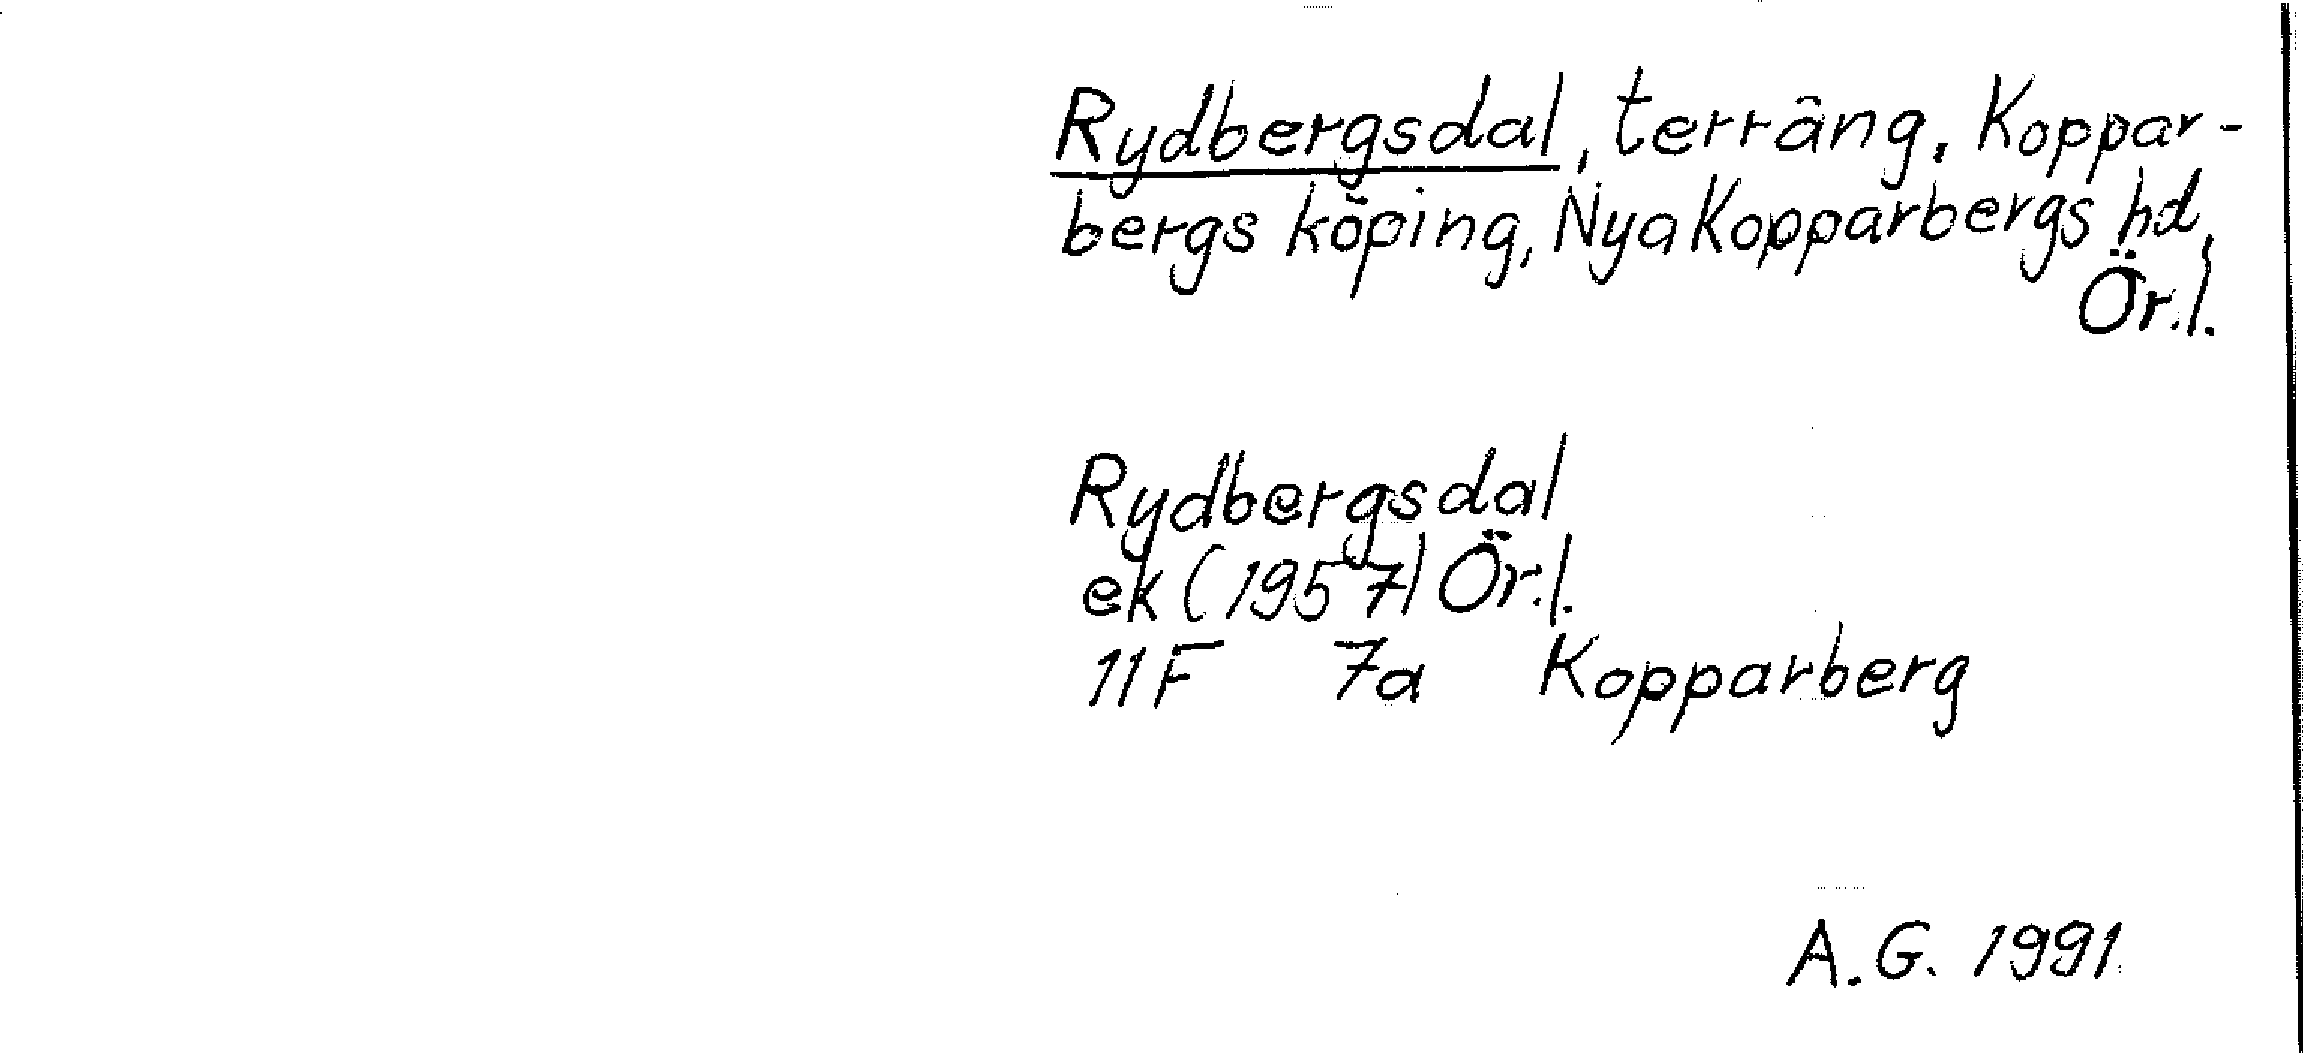 Rydbergsdal, terräng, Koppar-
bergs köping, Nya Kopparbergs hd,
Ör.l.
Rydbergsdal
ek (1957) Ör.l.
11F 7a Kopparberg
A.G. 1991